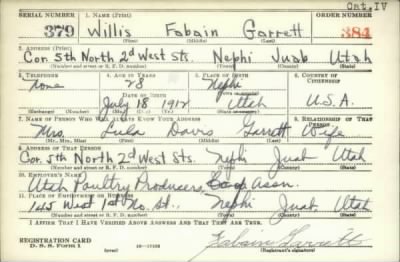 Cat. IV
SERIAL NUMBER 1. NAME (Print) ORDER NUMBER
379 Willis Fabain Garrett 384
(First) (Middle) (Last)
2. ADDRESS (Print)
Cor. 5th North 2d West Sts. Nephi Juab Utah
(Number and street or R. F. D. number) (Town) (County) (State)
3. TELEPHONE 4. AGE IN YEARS 5. PLACE OF BIRTH 6. COUNTRY OF CITIZENSHIP
None 28 Nephi
DATE OF BIRTH (Town or county)
July 18 1912 Utah U.S.A.
(Exchange) (Number) (Mo.) (Day) (Yr.) (State or country)
7. NAME OF PERSON WHO WILL ALWAYS KNOW YOUR ADDRESS 8. RELATIONSHIP OF THAT PERSON
Mrs. Lula Davis Garrett Wife
(Mr., Mrs., Miss) (First) (Middle) (Last)
9. ADDRESS OF THAT PERSON
Cor. 5th North 2d West Sts. Nephi Juab Utah
(Number and street or R. F. D. number) (Town) (County) (State)
10. EMPLOYER'S NAME
Utah Poultry Producers Coop Assn.
11. PLACE OF EMPLOYMENT OR BUSINESS
145 West 1st No. St., Nephi Juab Utah
(Number and street or R. F. D. number) (Town) (County) (State)
I AFFIRM THAT I HAVE VERIFIED ABOVE ANSWERS AND THAT THEY ARE TRUE.
REGISTRATION CARD
D. S. S. Form 1
Fabain Garrett
(Registrant's signature)